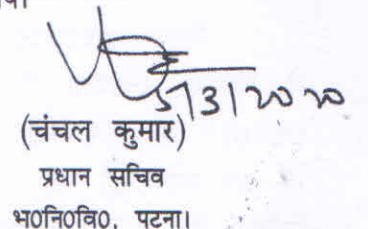 5/3/2020
(चंचल कुमार)
प्रधान सचिव
भ0नि0वि0, पटना।